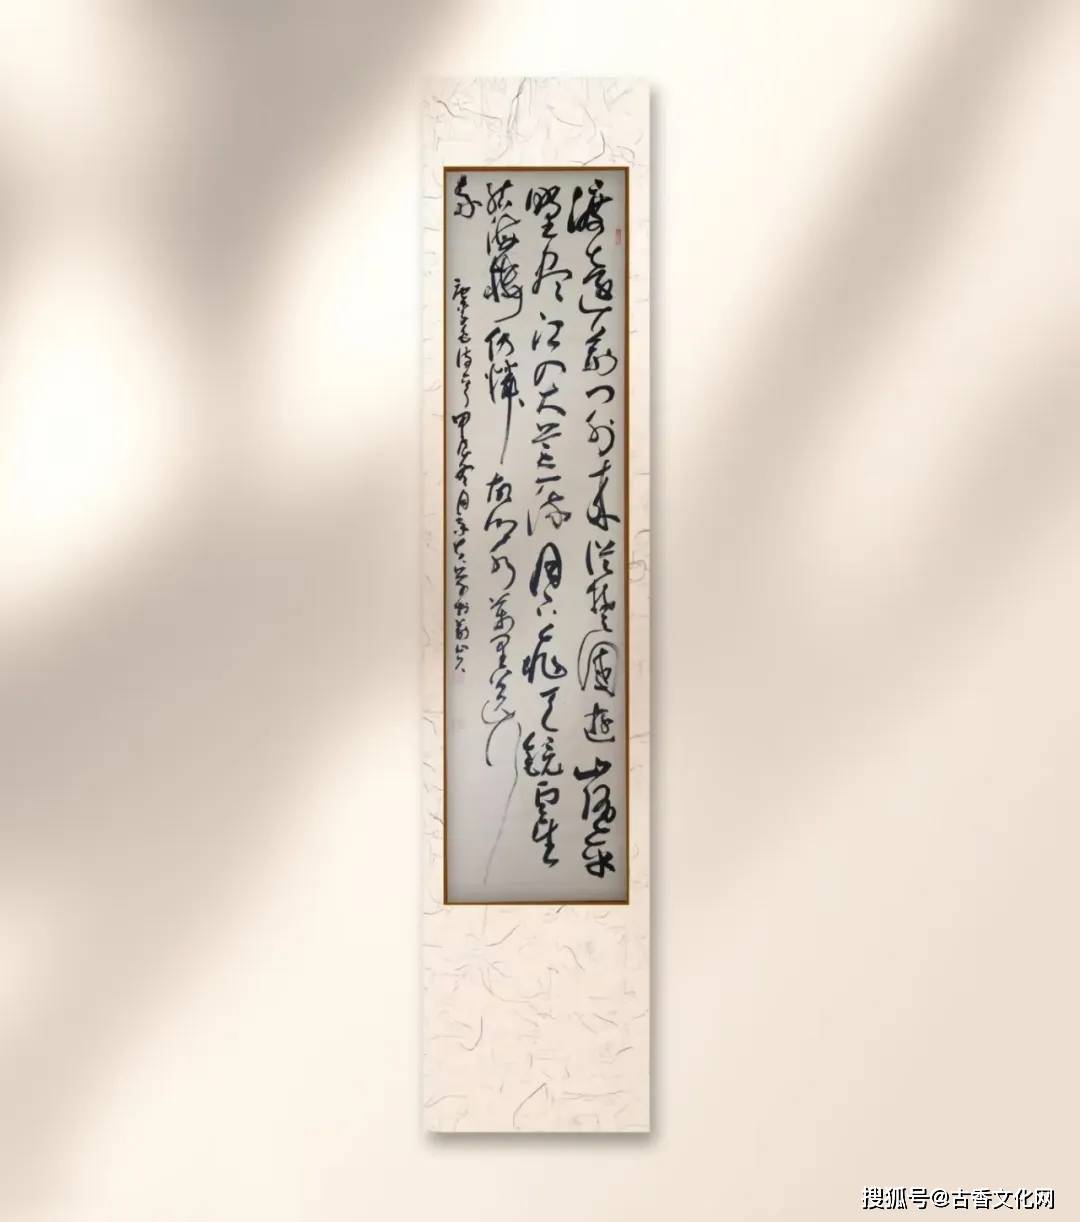 渡远荆门外来从楚国游山随平
野尽江入大荒流月下飞天镜云生
结海楼仍怜故乡水萬里送行
舟
甲辰冬月
搜狐号@古香文化网